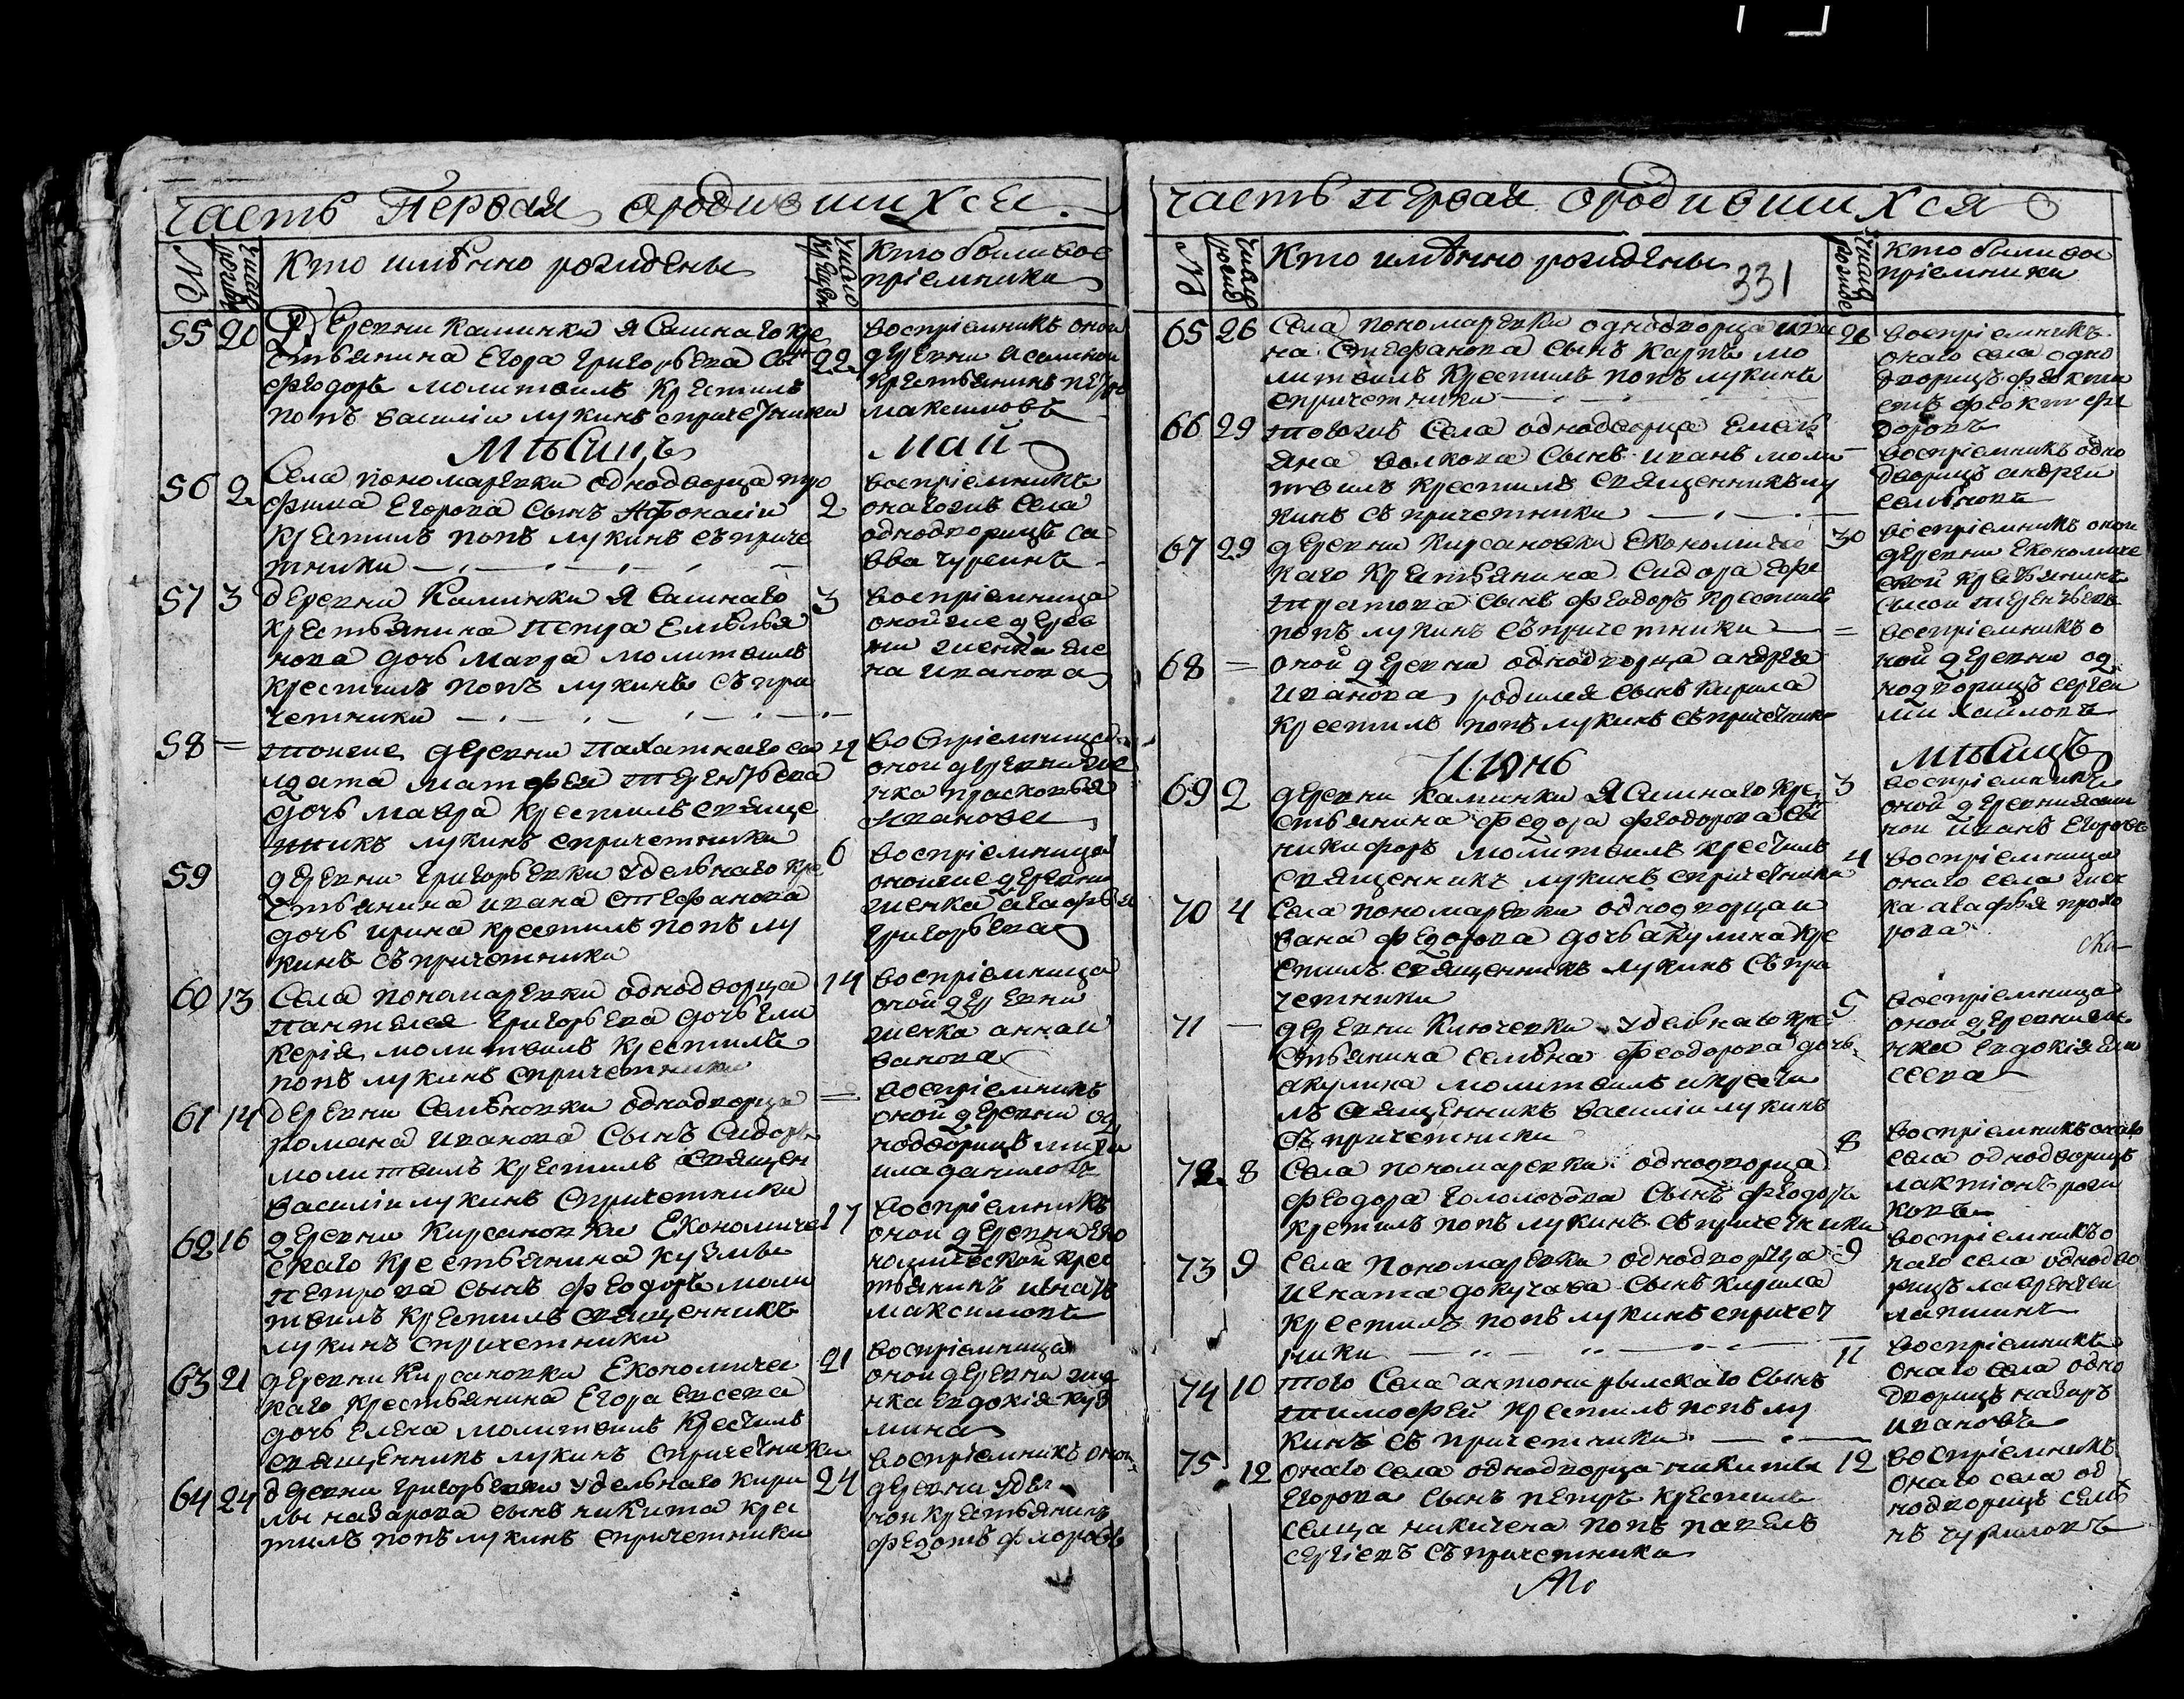 часть Первая ородившихся
№
число рожде
Кто имѣнно рожидены
число креще
Кто были вос
пріемники
55 20 Деревни Каминки Ясашнаго кре
стьянина Егора Григорьева сынъ 22
феодоръ молитвилъ крестилъ
попъ василіи лукинъ спричетники
воспріемникъ оной
деревни Ясашной
крестьянинъ петръ
максимовъ
Мѣсицъ май
56 2 Села пономаревки однодворца тро
фима Егорова сынъ Афонасіи 2
крестилъ попъ лукинъ съ приче
тники
воспріемникъ
онагоже села
однодворицъ са
вва чуреинъ
57 3 деревни Каминки Ясашнаго 3
крестьянина петра Емельья
нова дочь мавра молитвилъ
крестилъ попъ лукинъ съ при
четники
воспріемница
онойже дерев
ни женка еле
на иванова
58 = тоиже деревни пахатнаго со
лдата матфея терентьева
дочь мавра крестилъ священ
никъ лукинъ спричетники
воспріемница
оной деревни же
нка прасковья
иванова
59 деревни григорьевки удельнаго кре 6
стьянина ивана стефанова
дочь ирина крестилъ попъ лу
кинъ съ причетники
воспріемница
онойже деревни
женка агафья
григорьева
60 13 Села пономаревки однодворца 14
пантелея григорьева дочь гли
керія молитвилъ крестилъ
попъ лукинъ спричетники
воспріемница
оной деревни
женка анна и
ванова
61 14 деревни Семѣновки однодворца =
романа иванова сынъ Сидоръ
молитвилъ крестилъ священ
василіи лукинъ спричетники
воспріемникъ
оной деревни од
нодворицъ миха
ила даниловъ
62 16 деревни Кирсановки Економиче 17
скаго крестьянина кузмы
петрова сынъ феодоръ моли
твилъ крестилъ священникъ
лукинъ спричетники
воспріемникъ
оной деревни эко
номической крес
тьянинъ игнатъ
максимовъ
63 21 деревни Кирсановки Економичес 21
каго крестьянина Егора евсева
дочь Елена молитвилъ крестилъ
священникъ лукинъ спричетники
воспріемница
оной деревни же
нка евдокія куз
мина
64 24 деревни григорьевки удельнаго кири 24
лы назарова сынъ никита крес
тилъ попъ лукинъ спричетники
воспріемникъ оной
деревни удел
ной крестьянинъ
федотъ флоровъ
часть первая ородившихся
№
число рожде
Кто имѣнно рожидены
331
Кто были вос
пріемники
65 26 Села пономаревки однодворца ири
на Стефанова сынъ Карпъ мо
литвилъ крестилъ попъ лукинъ
спричетники
26 воспріемникъ
онаго села одно
дворицъ феокти
стъ
доровъ
66 29 тогожъ Села однодворца Емель
яна волкова сынъ иванъ моли
твилъ крестилъ священникъ лу
кинъ съ причетники
воспріемникъ одно
дворицъ андреи
семѣновъ
67 29 деревни Кирсановки Економичес 30
каго крестьянина Сидора
сынъ феодоръ крестилъ
попъ лукинъ съ причетники
воспріемникъ оной
деревни Економиче
ской крестьянинъ
сысои терентьевъ
68 = оной деревни однодворца андрея =
иванова родился сынъ кирила
крестилъ попъ лукинъ съ причетники
воспріемникъ о
ной деревни од
нодворицъ сергеи
михайловъ
Июнь мѣсицъ
69 2 деревни каминки Ясашнаго кре 3
стьянина федора феодорова сынъ
никифоръ молитвилъ крестилъ
священникъ лукинъ спричетники
воспріемникъ
оной деревни ясаш
ной иванъ Егоровъ
70 4 Села пономаревки однодворца и 4
вана федорова дочь акулина кре
стилъ священникъ лукинъ съ при
четники
воспріемница
онаго села жен
ка агафья прохо
рова
71 — деревни Ключевки удельнаго кре 5
стьянина семѣна феодорова дочь
акулина молитвилъ и крести
лъ священникъ василіи лукинъ
съ причетники
воспріемница
оной деревни же
нка евдокія али
сеева
72 8 Села пономаревки однодворца 8
феодора гололобова сынъ феодоръ
крестилъ попъ лукинъ съ причетники
воспріемникъ онаго
села однодворицъ
лактіонъ
ковъ
73 9 Села пономаревки однодворца 9
игната докучаева сынъ кирила
крестилъ попъ лукинъ спричет
ники
воспріемникъ о
наго села однодво
рицъ лаврентеи
лапшинъ
74 10 того Села антона рылскаго сынъ 11
тимофей крестилъ попъ лу
кинъ съ причетники
воспріемникъ
онаго села одно
дворицъ назаръ
ивановъ
75 12 онаго села однодворца никиты 12
Егорова сынъ петръ крестилъ
селца никичена попъ павелъ
сергіевъ съ причетники
воспріемникъ
онаго села од
нодворицъ семѣ
нъ чуриловъ